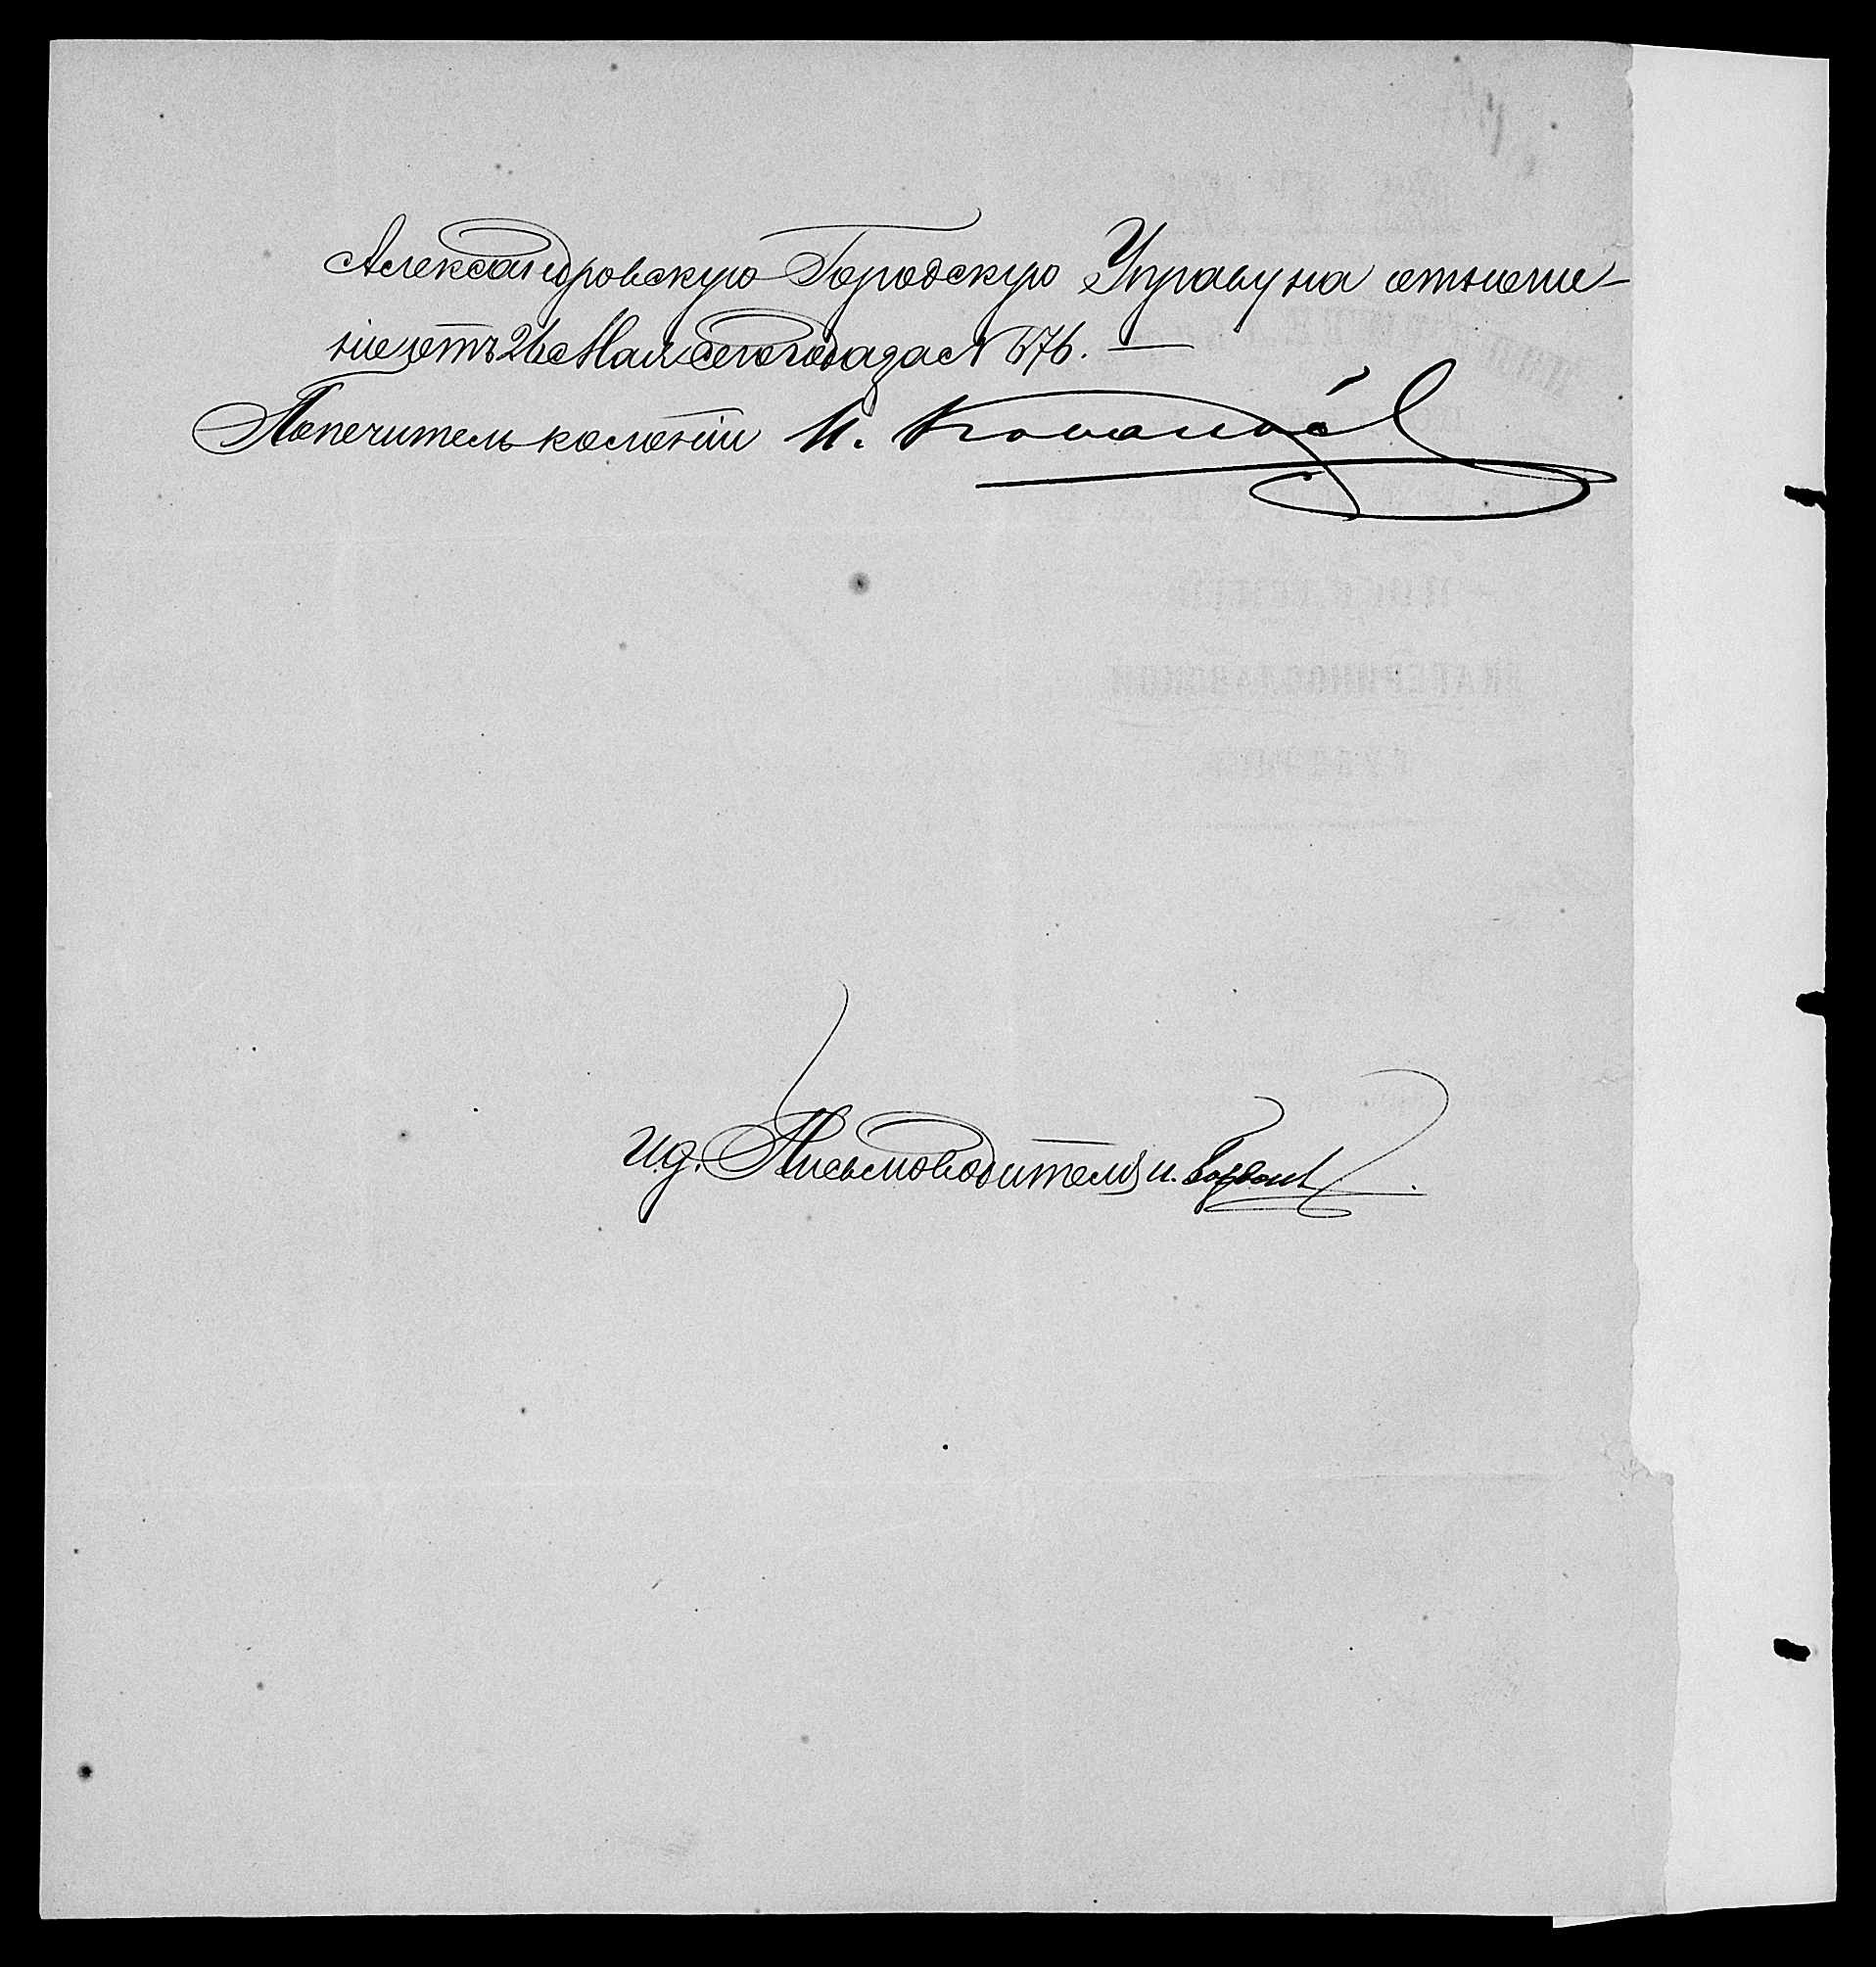 Александровскую Городскую Управу на отноше-
ніе отъ 26 Мая сего года за № 676. —
Попечитель колоніи И.
И.д. Письмоводителя И.